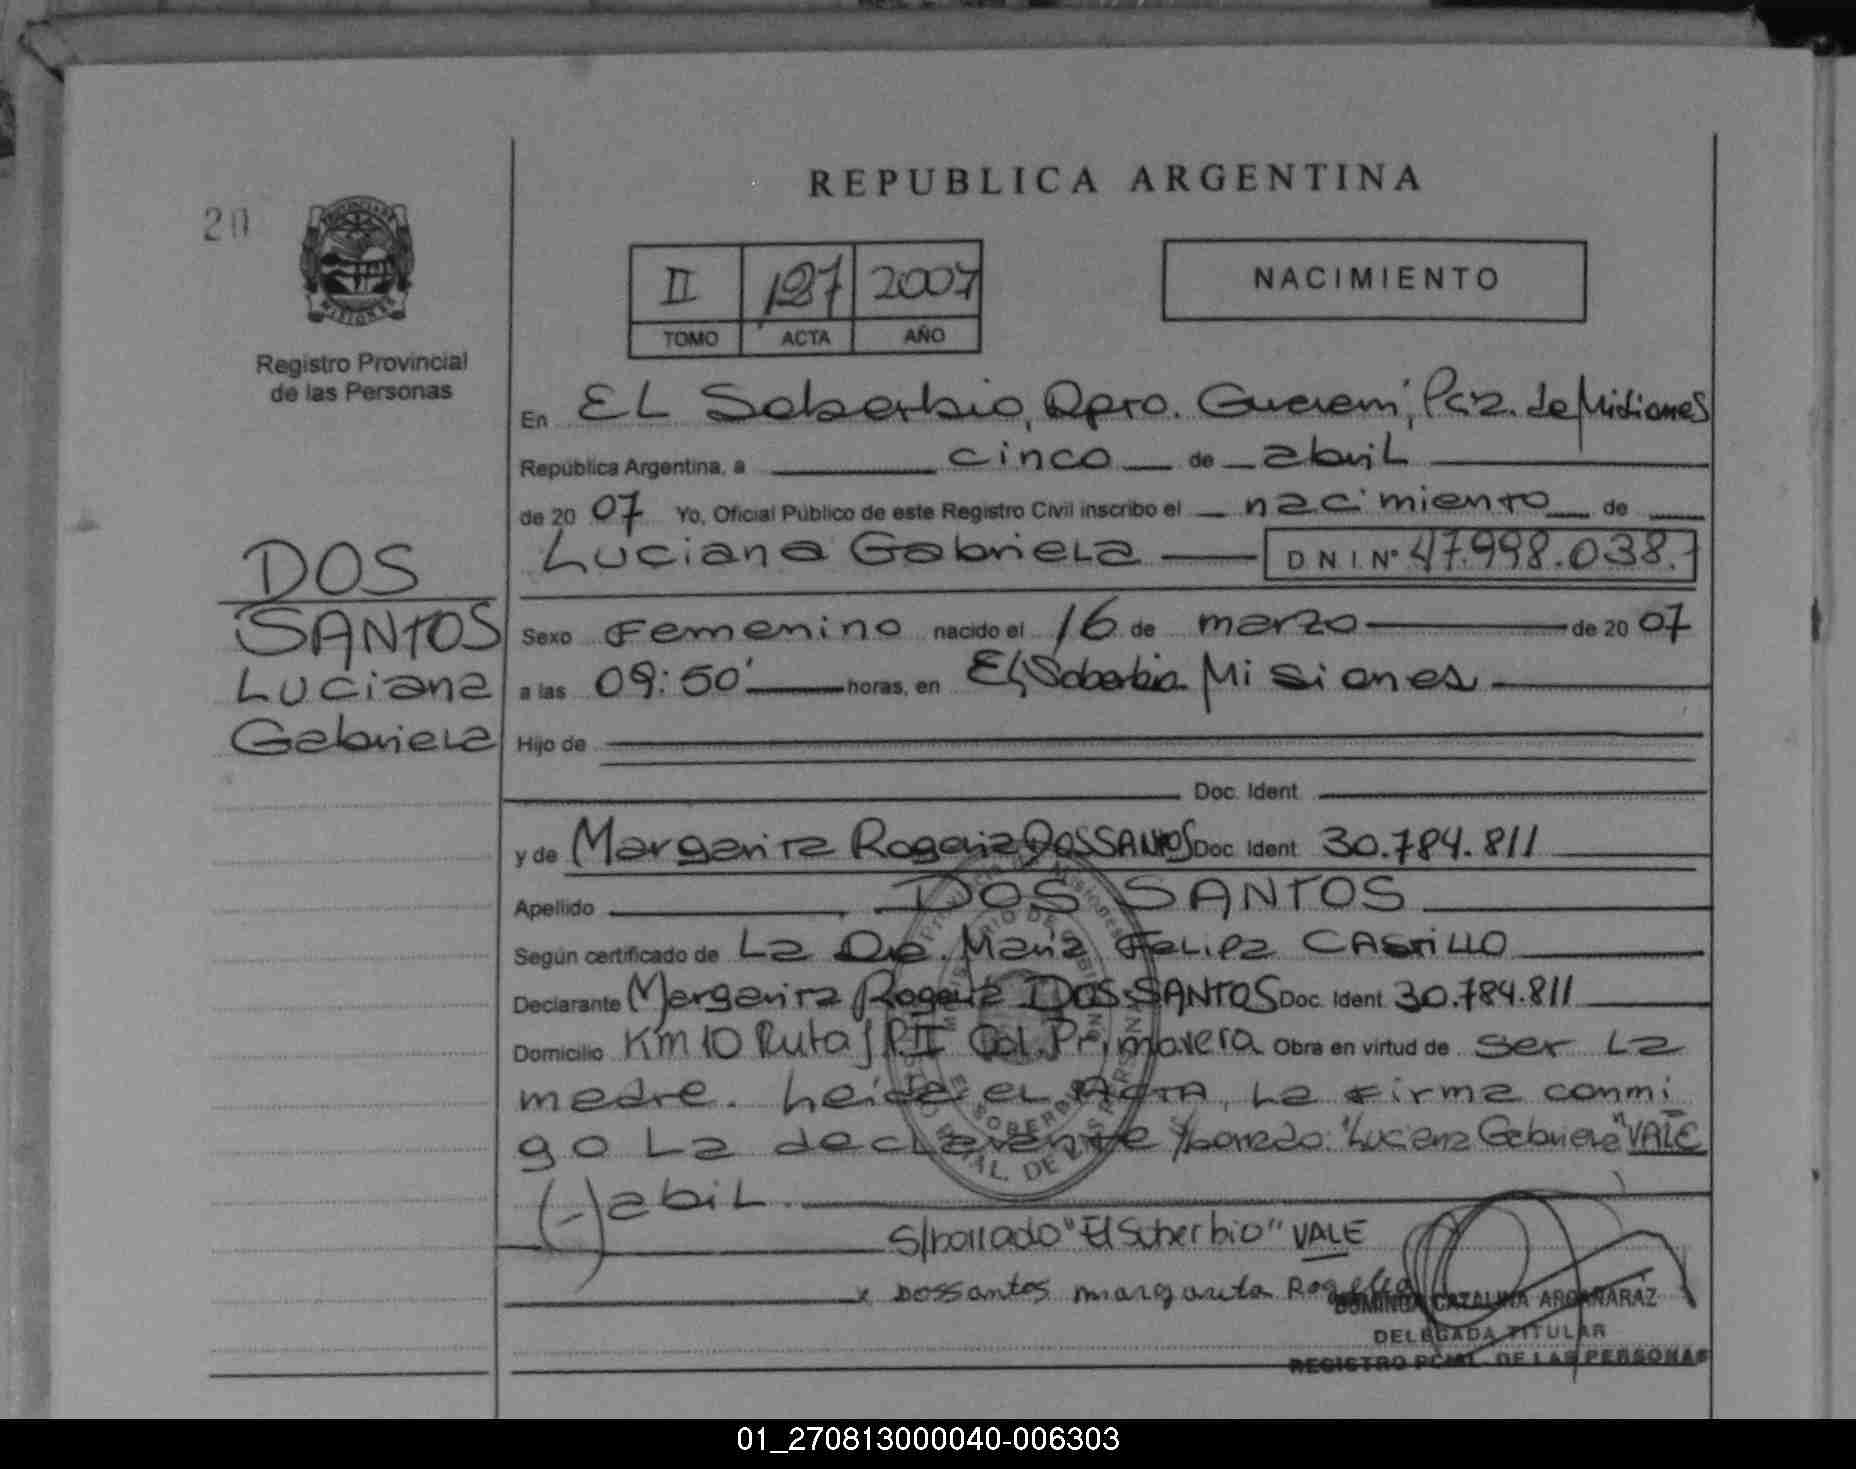 REPUBLICA ARGENTINA
20
II 127 2007
TOMO ACTA AÑO
NACIMIENTO
Registro Provincial
de las Personas
En EL Soberbio, Dpto. Guaraní, Pcia. de Misiones
República Argentina, a cinco de abril
de 2007 Yo, Oficial Público de este Registro Civil inscribo el nacimiento de
Luciana Gabriela D N I Nº 47.998.038.
DOS
SANTOS
Luciana
Gabriela
Sexo Femenino nacido el 16 de marzo de 2007
a las 09:50' horas, en El Soberbio Misiones
Hijo de
Doc. Ident.
y de Margarita Rogeria DOS SANTOS Doc. Ident. 30.784.811
Apellido DOS SANTOS
Según certificado de La Dra. María Felipa CASTILLO
Declarante Margarita DOS SANTOS Doc. Ident. 30.784.811
Domicilio Km 10 Ruta Col. Primavera Obra en virtud de ser La
madre. Leída el ACTA, La firma conmi
go La declarante S/borrado: "Luciana Gabriela" VALE
(-) abil
S/borrado "El Soberbio" VALE
x Dossantos margarita
DOMINGA CATALINA ARGAÑARAZ
DELEGADA TITULAR
REGISTRO PCIAL. DE LAS PERSONAS
01_270813000040-006303